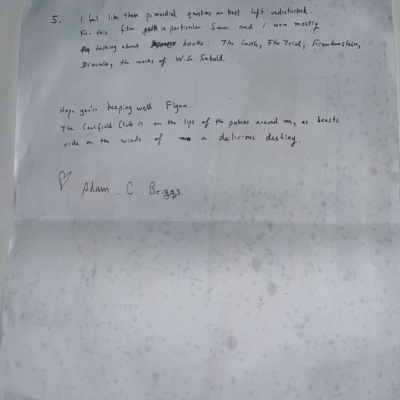 5. I feel like these primordial questions are best left undisturbed.
For this film in particular Sam and I were mostly
talking about books: The Castle, The Trial, Frankenstein,
Dracula, the works of W.G Sebald.
Hope you're keeping well Flynn.
The Caulfield Club is on the lips of the around me, as beasts
ride on the winds of a delirious destiny.
♡ Adam. C. Briggs.